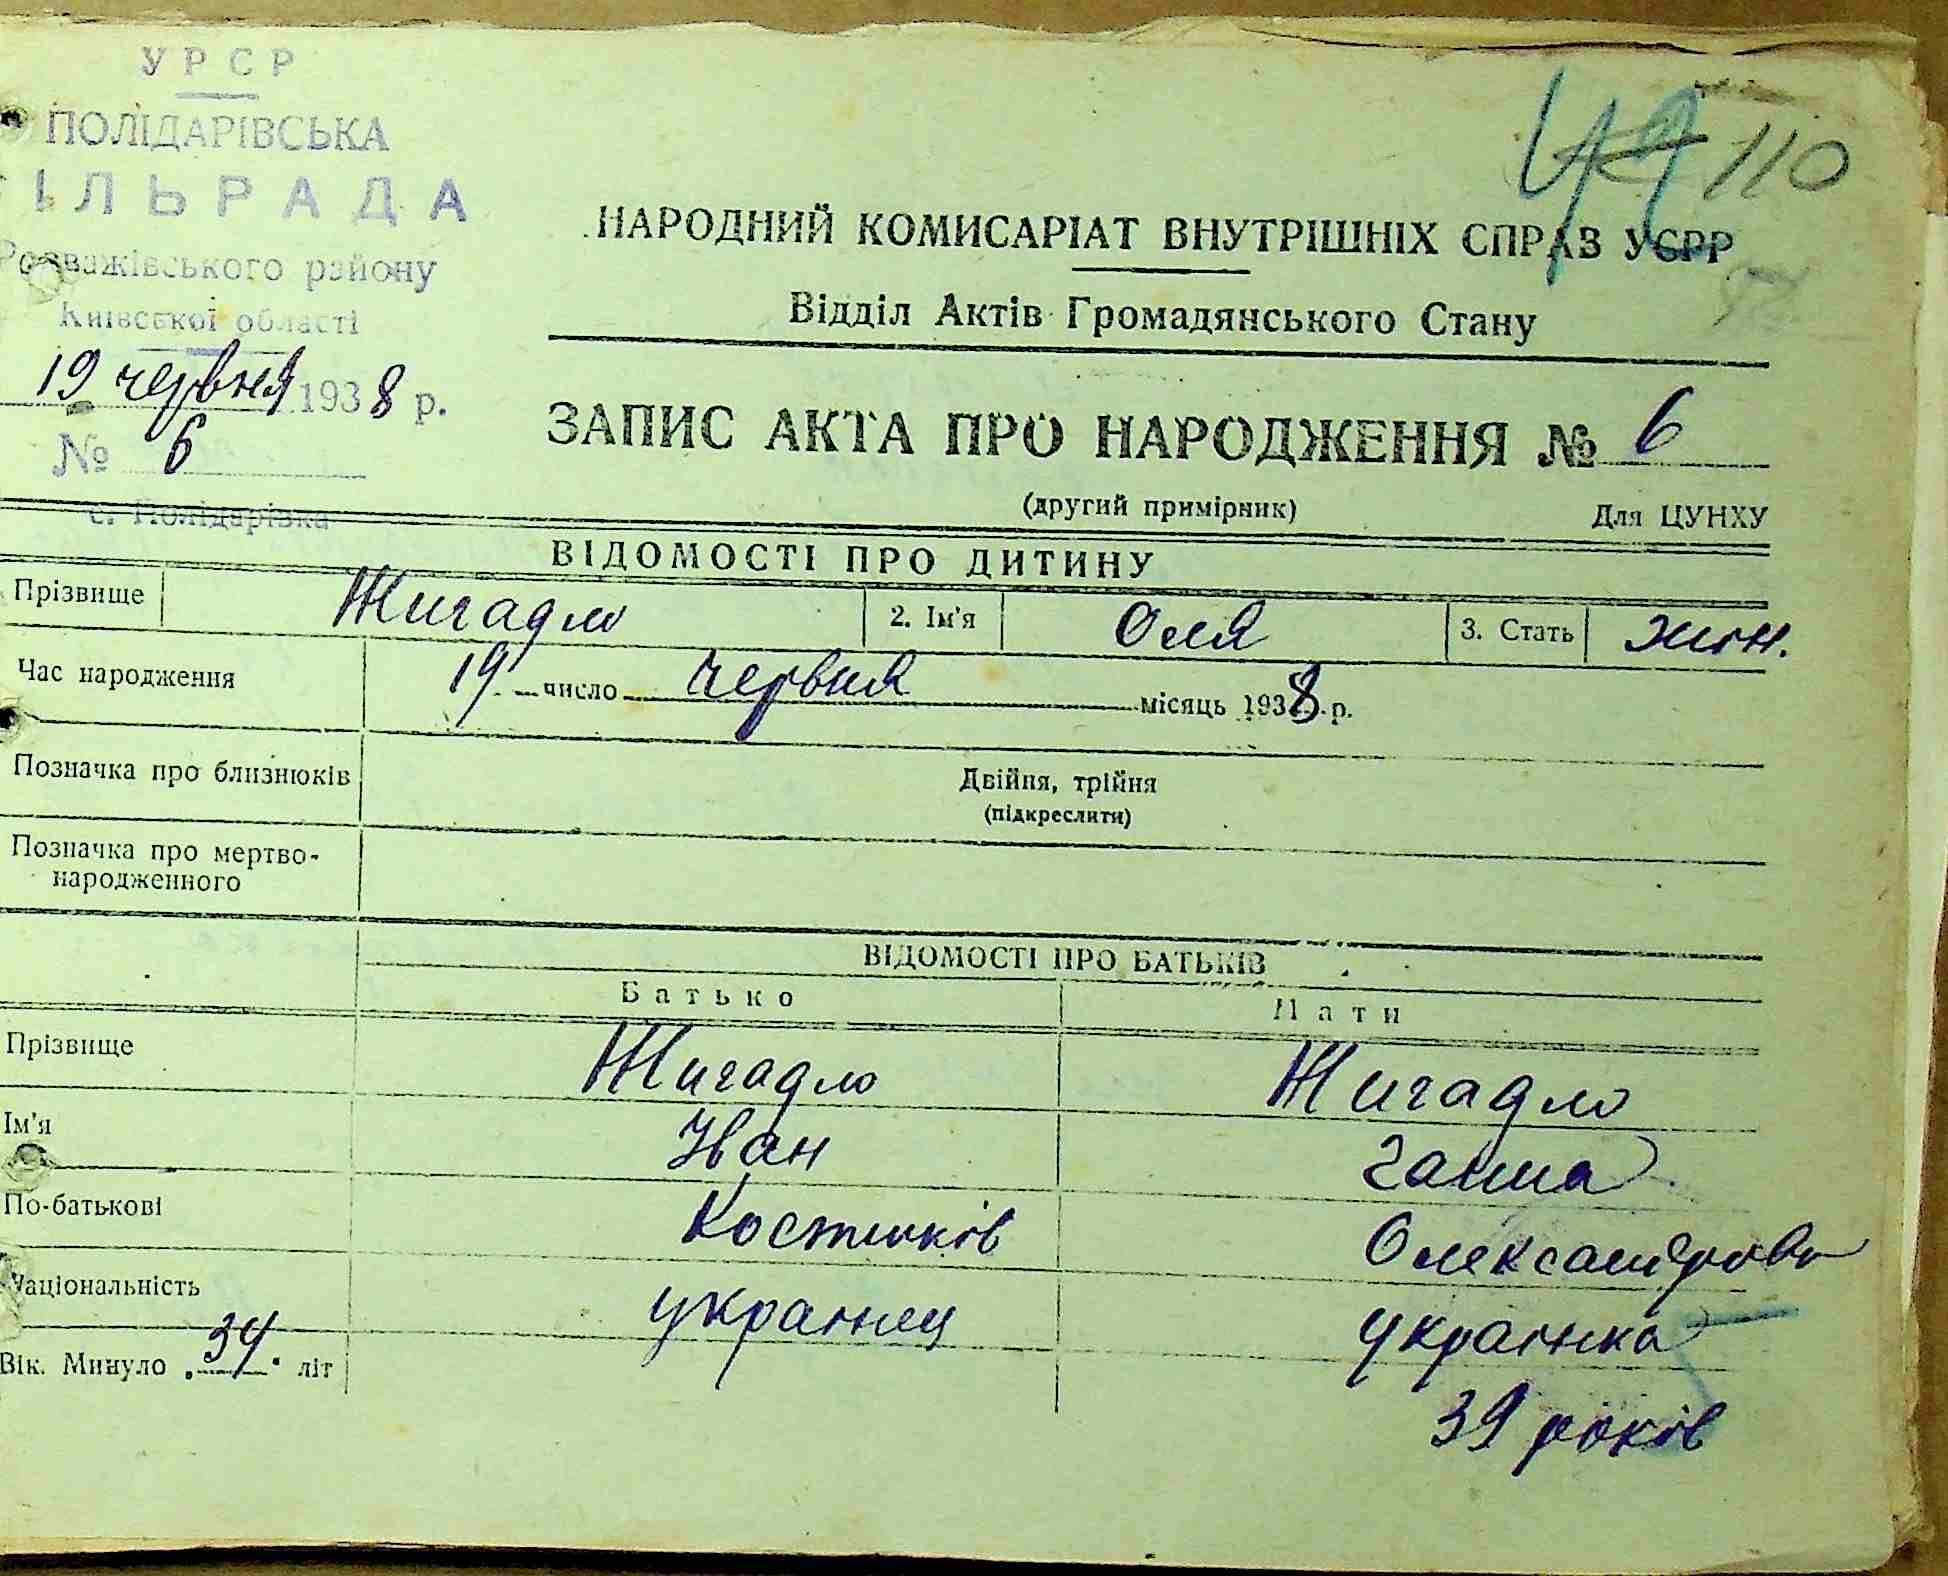 УРСР
ПОЛІДАРІВСЬКА
ІЛЬРАДА
Розважівського району
Київської області
19 червня 1938 р.
№ 6
с. Полідарівка
110
НАРОДНИЙ КОМИСАРІАТ ВНУТРІШНІХ СПРАВ УСРР
Відділ Актів Громадянського Стану
ЗАПИС АКТА ПРО НАРОДЖЕННЯ № 6
(другий примірник) Для ЦУНХУ
ВІДОМОСТІ ПРО ДИТИНУ
Прізвище Жигадло 2. Ім'я Оля 3. Стать жін.
Час народження 19 число червня місяць 1938 р.
Позначка про близнюків Двійня, трійня
(підкреслити)
Позначка про мертво-
народженного
ВІДОМОСТІ ПРО БАТЬКІВ
Батько Мати
Прізвище Жигадло Жигадло
Ім'я Іван Ганна
По-батькові Костьків Олександрова
Національність українец українка
Вік. Минуло 34 літ
39 років